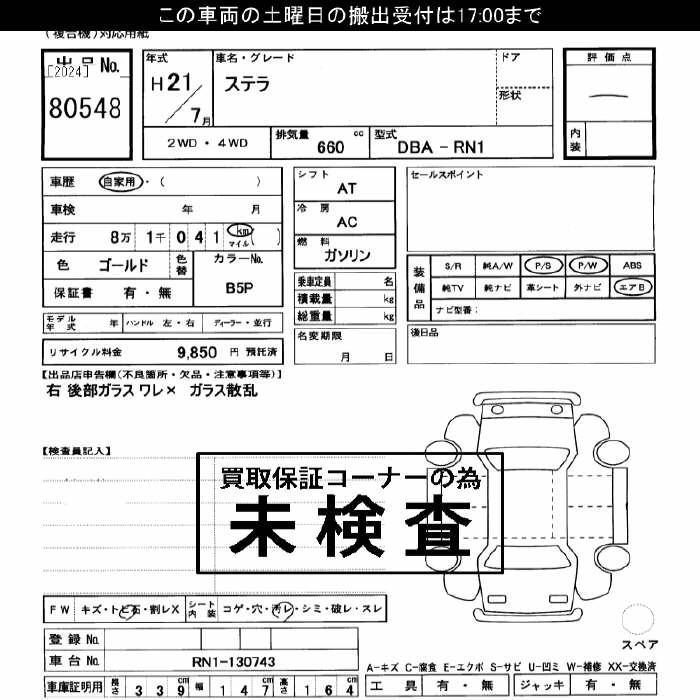 この車両の土曜日の搬出受付は17:00まで
(複合機)対応用紙
出品No.
[2024]
80548
年式
H21
7月
車名・グレード
ステラ
ドア
形状
評価点
内装
2WD・4WD
排気量 cc
660
型式
DBA - RN1
車歴 自家用・( )
車検 年 月
走行 8万 1千 0 4 1 km マイル ( )
色 ゴールド
色替
カラーNo.
B5P
保証書 有・無
シフト
AT
冷房
AC
燃料
ガソリン
乗車定員 名
積載量 kg
総重量 kg
名変期限
月 日
セールスポイント
装備品
S/R 純A/W P/S P/W ABS
純TV 純ナビ 革シート 外ナビ エアB
ナビ型番:
後日品
モデル年式 年 ハンドル 左・右 ディーラー・並行
リサイクル料金 9,850 円 預託済
【出品店申告欄(不良箇所・欠品・注意事項等)】
右 後部ガラス ワレ× ガラス散乱
【検査員記入】
買取保証コーナーの為
未検査
FW キズ・トビ石・割レX シート内装 コゲ・穴・汚レ・シミ・破レ・スレ
登録No.
車台No. RN1-130743
車庫証明用 長さ 3 3 9 cm 幅 1 4 7 cm 高さ 1 6 4 cm
スペア
A-キズ C-腐食 E-エクボ S-サビ U-凹ミ W-補修 XX-交換済
工具 有・無 ジャッキ 有・無